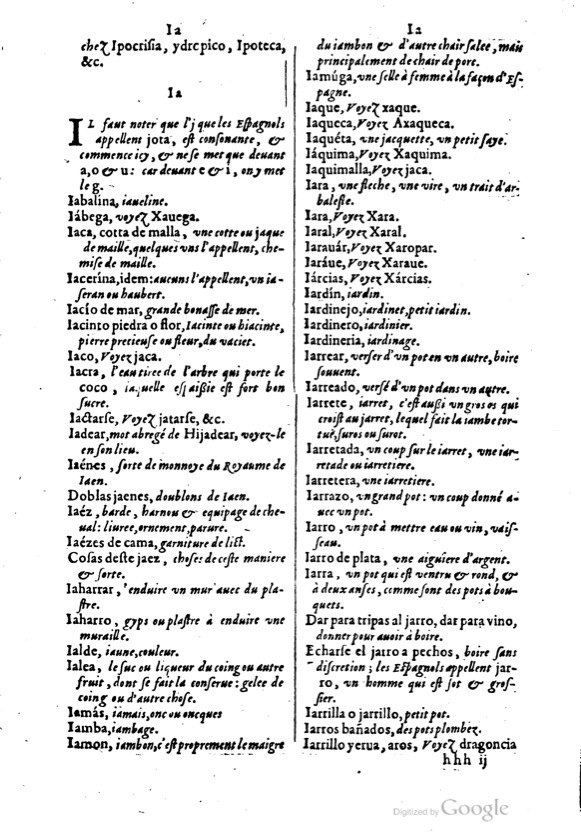 Ia
chez Ipocrisia, ydrepico, Ipoteca,
&c.
Ia
IL faut noter que l'j que les Espagnols
appellent jota, est consonante, &
commence icy, & ne se met que deuant
a, o & u: car deuant e & i, on y met
le g.
Iabalina, iaueline.
Iábega, voyez Xauega.
Iaca, cotta de malla, vne cotte ou jaque
de maille, quelques vns l'appellent, che-
mise de maille.
Iacerína, idem: aucuns l'appellent, vn ia-
seran ou haubert.
Iacío de mar, grande bonasse de mer.
Iacinto piedra o flor, Iacinte ou hiacinte,
pierre precieuse ou fleur, du vaciet.
Iaco, Voyez jaca.
Iacra, l'eau tiree de l'arbre qui porte le
coco, laquelle espaissie est fort bon
sucre.
Iactarse, Voyez jatarse, &c.
Iadear, mot abregé de Hijadear, voyez-le
en son lieu.
Iaénes, sorte de monnoye du Royaume de
Iaen.
Doblas jaenes, doublons de Iaen.
Iaéz, barde, harnou & equipage de che-
ual: liuree, ornement, parure.
Iaézes de cama, garniture de lict.
Cosas deste jaez, choses de ceste maniere
& sorte.
Iaharrar, enduire vn mur auec du pla-
stre.
Iaharro, gyps ou plastre à enduire vne
muraille.
Ialde, iaune, couleur.
Ialea, le suc ou liqueur du coing ou autre
fruit, dont se fait la conserue: gelee de
coing ou d'autre chose.
Iamás, iamais, onc ou oncques
Iamba, iambage.
Iamon, iambon, c'est proprement le maigre
Ia
du iambon & d'autre chair salee, mais
principalement de chair de porc.
Iamúga, vne selle à femme à la façon d'Es-
pagne.
Iaque, Voyez xaque.
Iaqueca, Voyez Axaqueca.
Iaquéta, vne jacquette, vn petit saye.
Iáquima, Voyez Xaquima.
Iaquimalla, Voyez jaca.
Iara, vne fleche, vne vire, vn trait d'ar-
baleste.
Iara, Voyez Xara.
Iaral, Voyez Xaral.
Iarauár, Voyez Xaropar.
Iaráue, Voyez Xaraue.
Iárcias, Voyez Xárcias.
Iardín, iardin.
Iardinejo, iardinet, petit iardin.
Iardinero, iardinier.
Iardineria, iardinage.
Iarrear, verser d'vn pot en vn autre, boire
souuent.
Iarreado, versé d'vn pot dans vn autre.
Iarrete, iarret, c'est aussi vn gros os qui
croist au jarret, lequel fait la iambe tor-
tue, suros ou surot.
Iarretada, vn coup sur le iarret, vne iar-
retade ou iarretiere.
Iarretera, vne iarretiere.
Iarrazo, vn grand pot: vn coup donné a-
uec vn pot.
Iarro, vn pot à mettre eau ou vin, vais-
seau.
Iarro de plata, vne aiguiere d'argent.
Iarra, vn pot qui est ventru & rond, &
à deux anses, comme sont des pots à bou-
quets.
Dar para tripas al jarro, dar para vino,
donner pour auoir à boire.
Echarse el jarro a pechos, boire sans
discretion; les Espagnols appellent jar-
ro, vn homme qui est sot & gros-
sier.
Iarrilla o jarrillo, petit pot.
Iarros bañados, des pots plombez.
Iarrillo yerua, aros, Voyez dragoncia
hhh ij
Digitized by Google